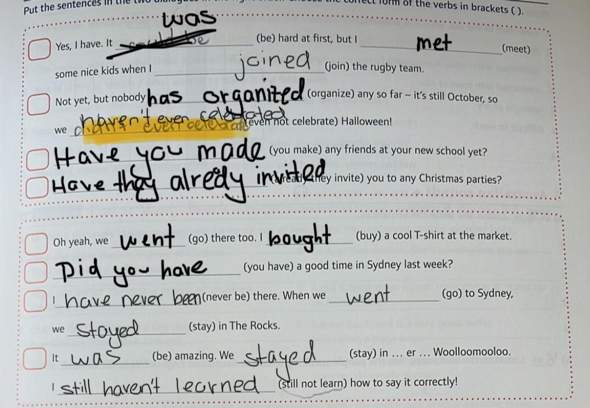 Put the sentences in the two dialogues correct form of the verbs in brackets ( ).
was
Yes, I have. It be (be) hard at first, but I met (meet)
some nice kids when I joined (join) the rugby team.
Not yet, but nobody has organized (organize) any so far – it's still October, so
we haven't ever celebrated (even not celebrate) Halloween!
Have you made (you make) any friends at your new school yet?
Have they alredy invited they invite) you to any Christmas parties?
Oh yeah, we went (go) there too. I bought (buy) a cool T-shirt at the market.
Did you have (you have) a good time in Sydney last week?
I have never been (never be) there. When we went (go) to Sydney,
we stayed (stay) in The Rocks.
It was (be) amazing. We stayed (stay) in … er … Woolloomooloo.
I still haven't learned (still not learn) how to say it correctly!